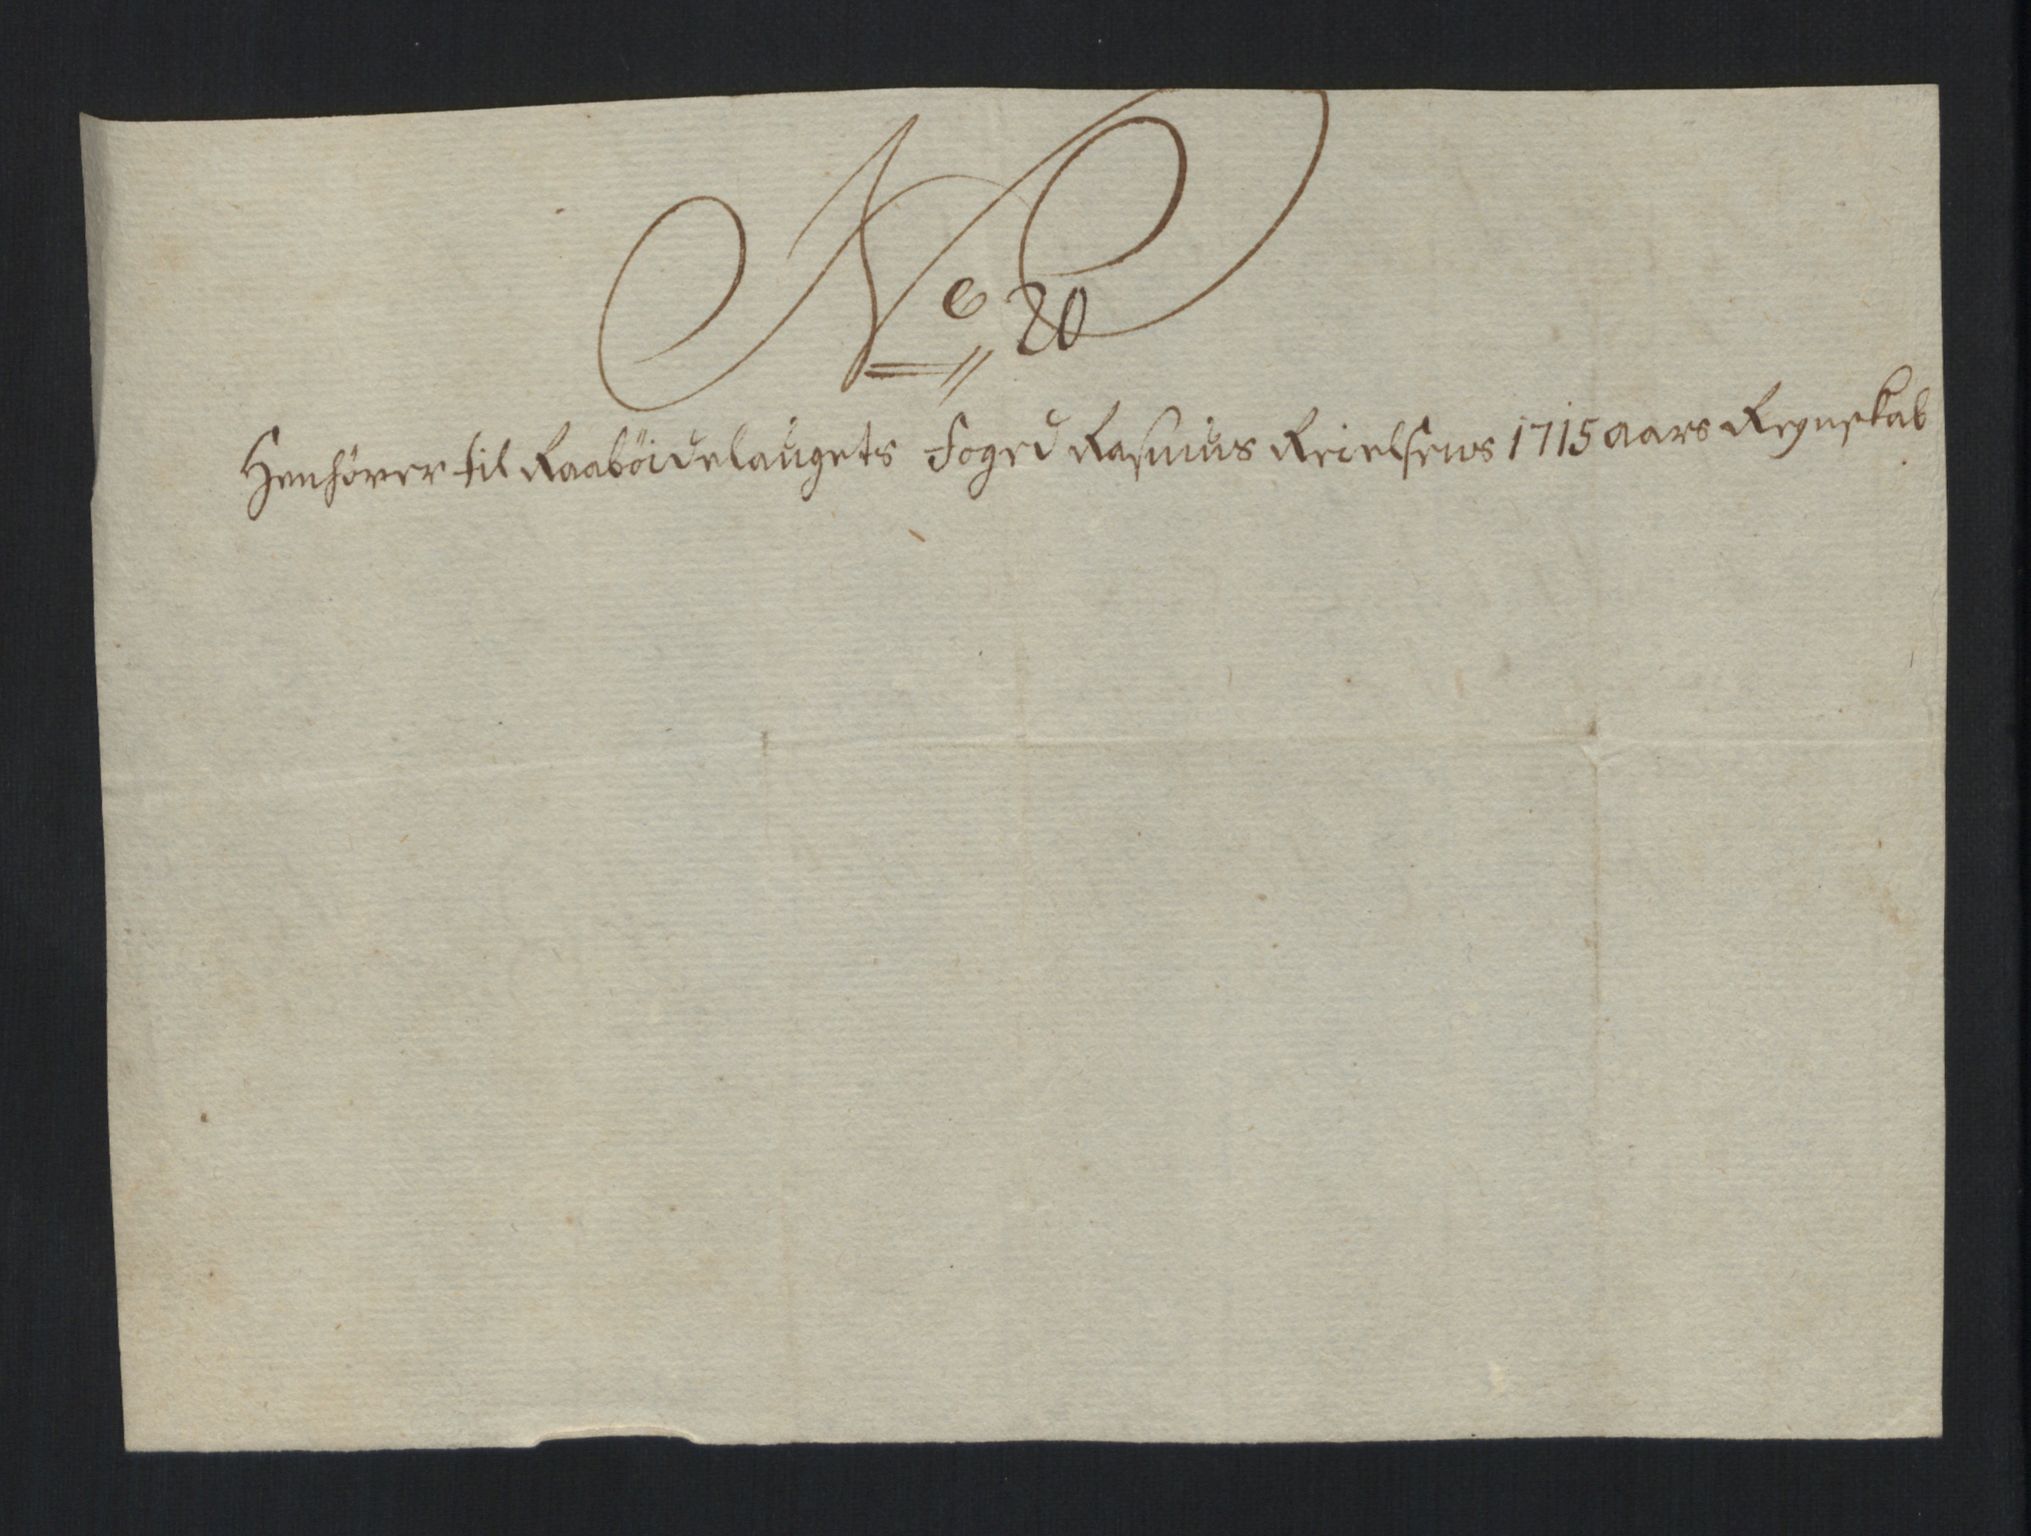 No 20
Henhörer til Raaböidelaugets Foged Rasmus Reielsens 1715 aars Regnskab